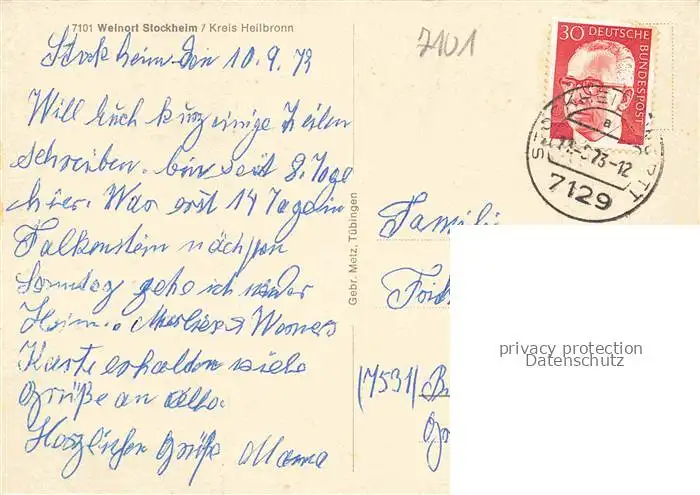 7101 Weinort Stockheim / Kreis Heilbronn
7101
30 DEUTSCHE BUNDESPOST
Stockheim den 10.9.73
Will Euch kurz einige Zeilen
schreiben. bin seit 8. Tage
hier. War erst 14 Tage in
Falkenstein nächsten
Sonntag gehe ich wieder
Heim. Marliese Werners
Karte erhalten viele
Grüße an alle.
Herzlichen Grüße Mama
Gebr. Metz, Tübingen
-873-12
7129
Famili
(7531)
privacy protection
Datenschutz